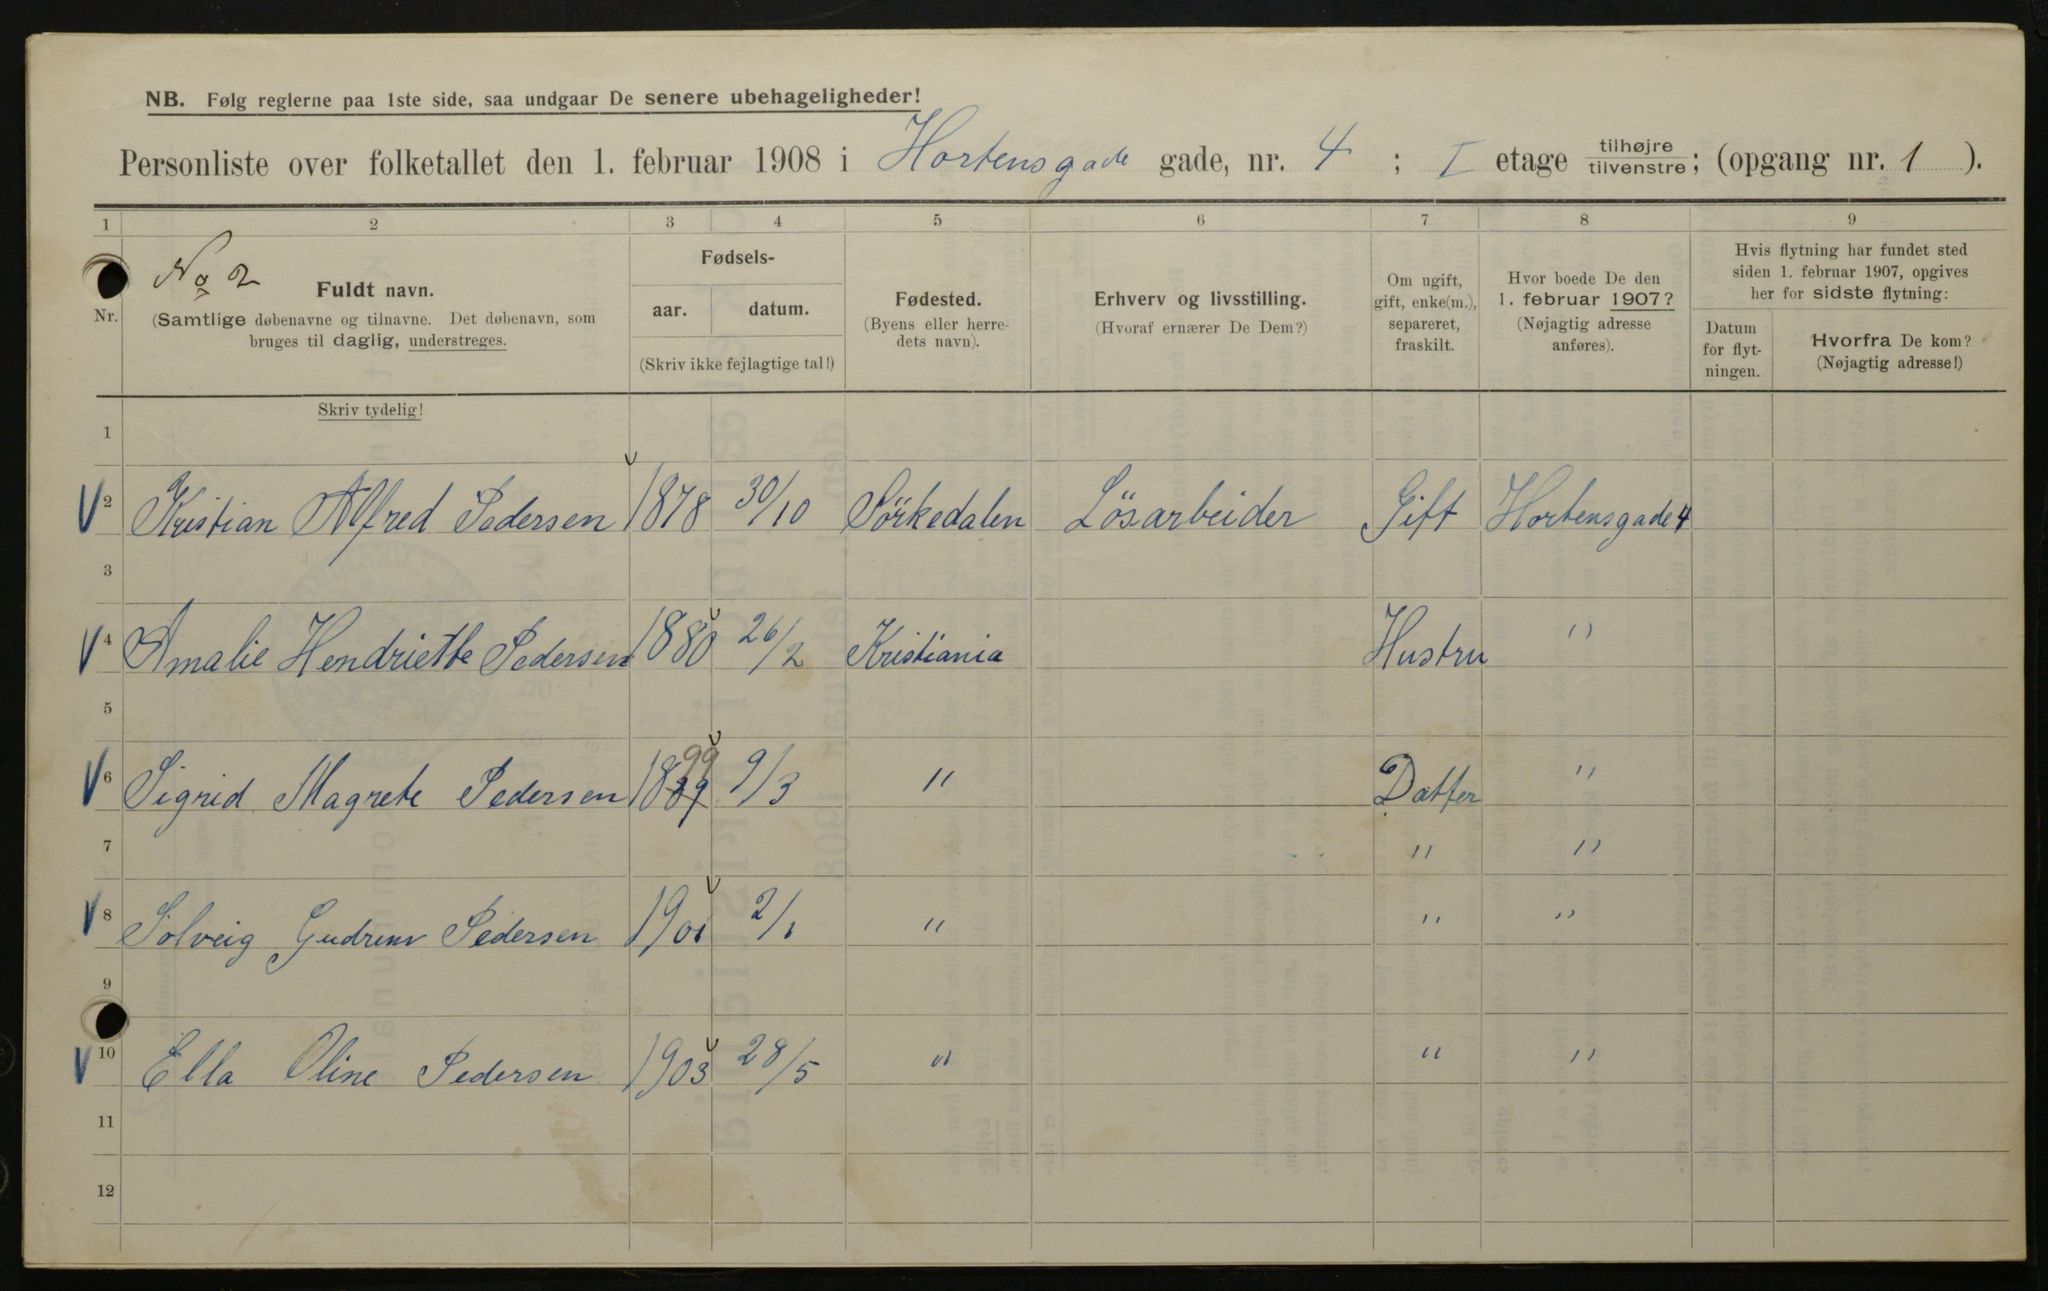 NB. Følg reglerne paa 1ste side, saa undgaar De senere ubehageligheder!
Personliste over folketallet den 1. februar 1908 i Hortensgade gade, nr. 4 ; I etage tilhøjre/tilvenstre; (opgang nr. 1 ).
1 2 3 4 5 6 7 8 9
No 2
Nr.
Fuldt navn.
(Samtlige døbenavne og tilnavne. Det døbenavn, som
bruges til daglig, understreges.
Fødsels-
aar. datum.
(Skriv ikke fejlagtige tal!)
Fødested.
(Byens eller herre-
dets navn).
Erhverv og livsstilling.
(Hvoraf ernærer De Dem?)
Om ugift,
gift, enke(m.),
separeret,
fraskilt.
Hvor boede De den
1. februar 1907?
(Nøjagtig adresse
anføres).
Hvis flytning har fundet sted
siden 1. februar 1907, opgives
her for sidste flytning:
Datum
for flyt-
ningen.
Hvorfra De kom?
(Nøjagtig adresse!)
Skriv tydelig!
1
2 Kristian Alfred Pedersen 1878 30/10 Sörkedalen Lösarbeider Gift Hortensgade 4
3
4 Amalie Hendriette Pedersen 1880 26/2 Kristiania Hustru "
5
6 Sigrid Magrete Pedersen 1889 99 9/3 " Datter "
7 " "
8 Solveig Gudrun Pedersen 1901 2/1 " " "
9
10 Ella Oline Pedersen 1903 28/5 " " "
11
12